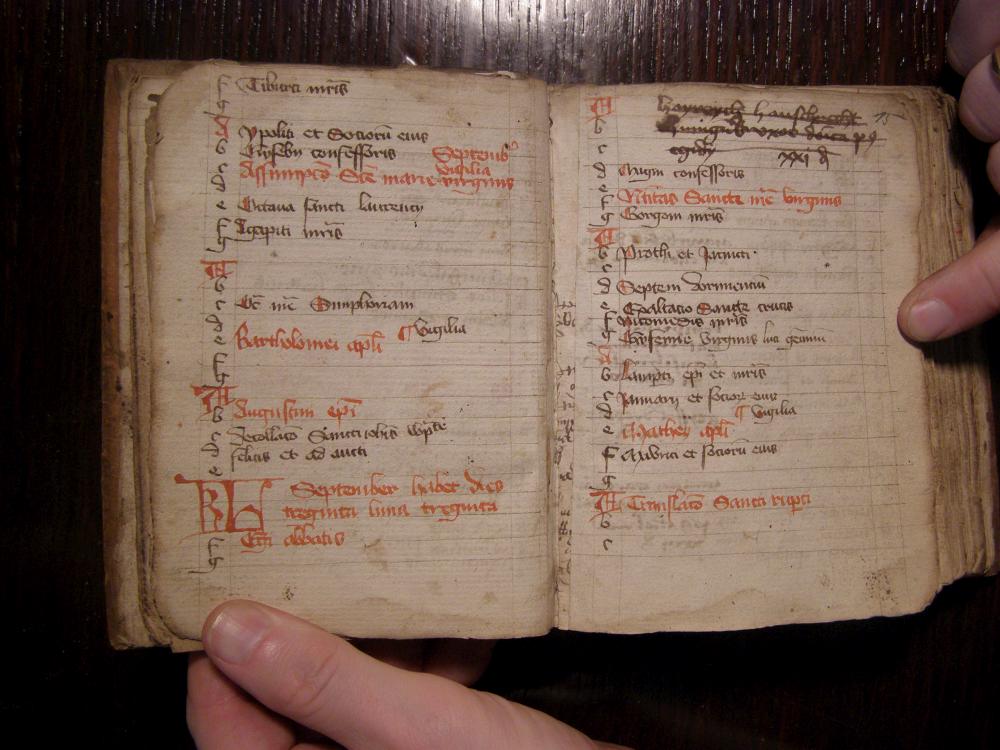 f Tiburci mris
g
A Ypoliti et Sociorū eius
b Eusebii confessoris Septemb
c Assumpcō Scē marie virginis vigilia
d
e Octaua sancti laurencij
f Agapiti mris
g
A
b
c Oc mē Simphoriani
d
e Bartholomei apli vigilia
f
g
A
b Augustini epi
c Decollacō Sancti iohis bapte
d felicis et ad aucti
e
KL September habet dies
treginta luna treginta
f Egidi abbatis
g
A 15
b
c egidy xxi d
d Magni confessoris
e
f Natiuitas Sancte mē virginis
g Gorgoni mris
A
b Prothi et Jacincti
c
d Septem dormenciū
e Exaltacio Sancte crucis
f Nicomedis mris
g Eufemie virginis luci geminiani
A
b Lamperti epi et mris
c Januarii et socior eius
d vigilia
e Mathei apli
f Mauricii et sociorū eius
g
A Translacō Sancti rupti
b
c